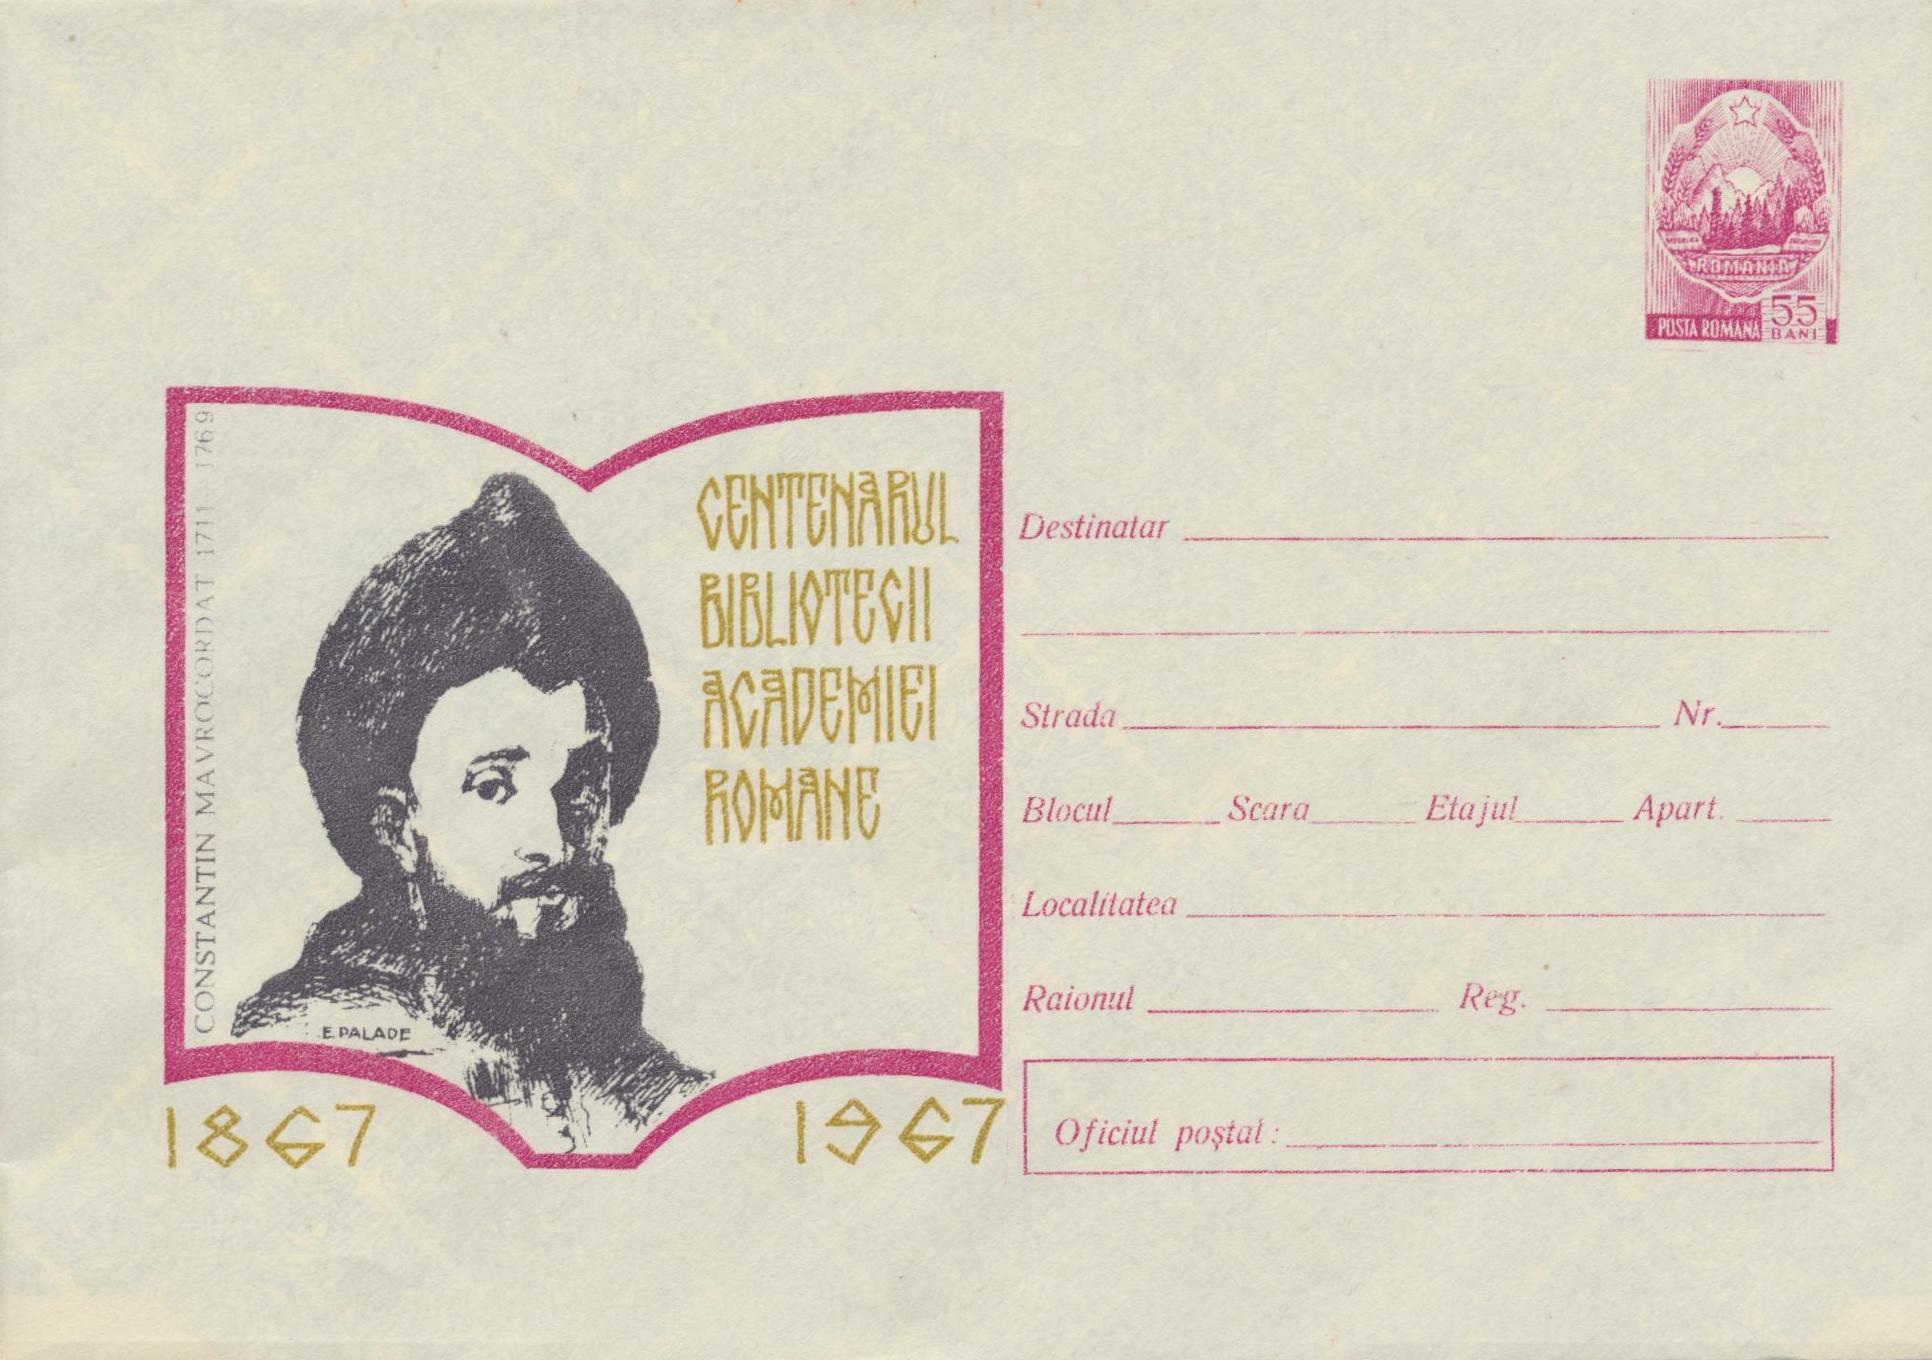 ROMANIA
55
POSTA ROMANA BANI
CONSTANTIN MAVROCORDAT 1711 1769
CENTENARUL
BIBLIOTECII
ACADEMIEI
ROMANE
E. PALADE
1867 1967
Destinatar
Strada Nr.
Blocul Scara Etajul Apart.
Localitatea
Raionul Reg.
Oficiul poștal :